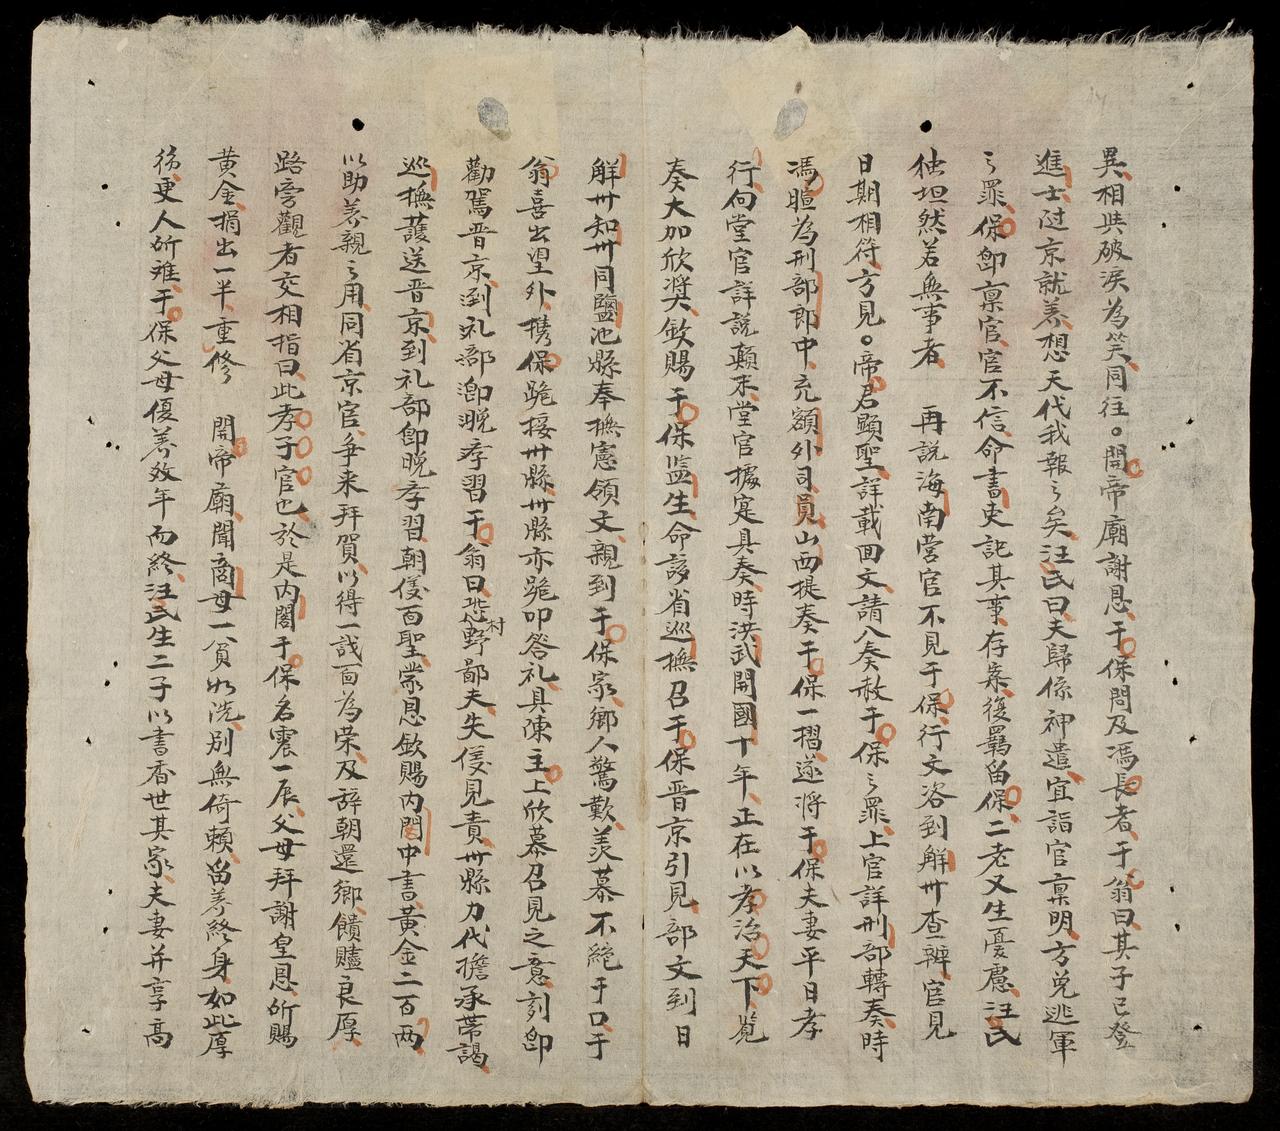 異相共破涙為笑同往。関帝廟謝恩于保問及馮長者于翁曰其子已登
進士过京就养想天代我報之矣汪氏曰夫歸係神遣宜詣官禀明方免逃軍
之罪保卽禀官官不信命書吏記其事存案復羈留保二老又生憂慮汪氏
独坦然若無事者 再説海南营官不見于保行文咨到觧州查辦官見
日期相符方見。帝君顕聖詳載囬文請入奏赦于保之罪上官詳刑部轉奏時
馮暄為刑部郎中充額外司員山西提奏于保一摺遂將于保夫妻平日孝
行向堂官詳説顛末堂官據寔具奏時洪武開國十年正在以孝治天下覧
奏大加欣奬欽賜于保監生命該省巡撫召于保晋京引見部文到日
觧州知州同鹽池縣奉撫憲領文親到于保家鄉人驚歎羡慕不絶于口于
翁喜出望外携保跪接州縣州縣亦跪叩答礼具陳主上欣慕召見之意刻卽
勸駕晋京到礼部卽晚孝習于翁曰恐村野鄙夫失儀見責州縣力代擔承帯謁
巡撫護送晋京到礼部卽晚孝習朝儀面聖蒙恩欽賜内閣中書黄金二百两
以助养親之用同省京官争来拜賀以得一識面為栄及辞朝還鄉饋贐良厚
路旁觀者交相指曰此孝子官也於是内閣于保名震一辰父母拜謝皇恩所賜
黄金捐出一半重修 関帝廟聞商母一貧如洗别無倚賴畄养終身如此厚
徳更人所难于保父母優养效年而終汪氏生二子以書香世其家夫妻并享高